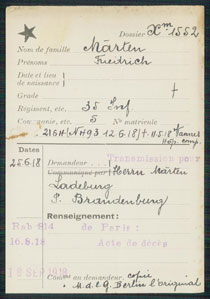 Dossier Xm 1552
Nom de famille Märten
Prénoms Friedrich
Date et lieu
de naissance
Grade †
Régiment, etc. 35 Inf
Compagnie, etc. 5 N° matricule
216H (NH93 12.6.18) † 11.5.18 Hames
comp.
Dates
25.6.18 Demandeur Transmission pour
Communiqué par Herrn Märten
Ladeburg
P. Brandenburg
Renseignement:
Rab 914 de Paris:
16.8.18 Acte de décès
10 SEP 1918
Com. au demandeur copie
M.d.G. Berlin l'original